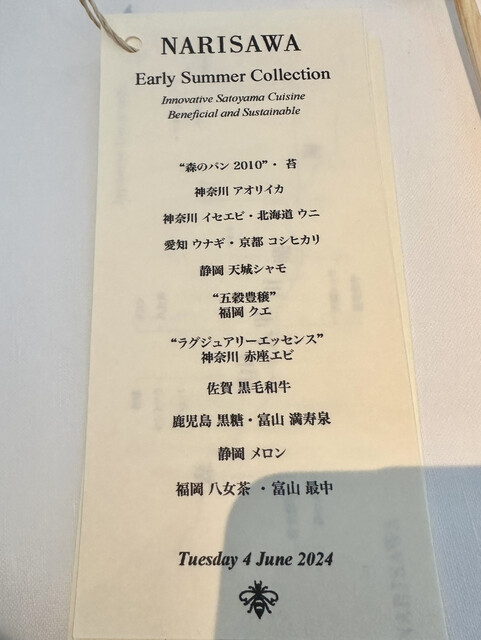 NARISAWA
Early Summer Collection
Innovative Satoyama Cuisine
Beneficial and Sustainable
“森のパン 2010”・ 苔
神奈川 アオリイカ
神奈川 イセエビ・北海道 ウニ
愛知 ウナギ・京都 コシヒカリ
静岡 天城シャモ
“五穀豊穣”
福岡 クエ
“ラグジュアリーエッセンス”
神奈川 赤座エビ
佐賀 黒毛和牛
鹿児島 黒糖・富山 満寿泉
静岡 メロン
福岡 八女茶 ・富山 最中
Tuesday 4 June 2024